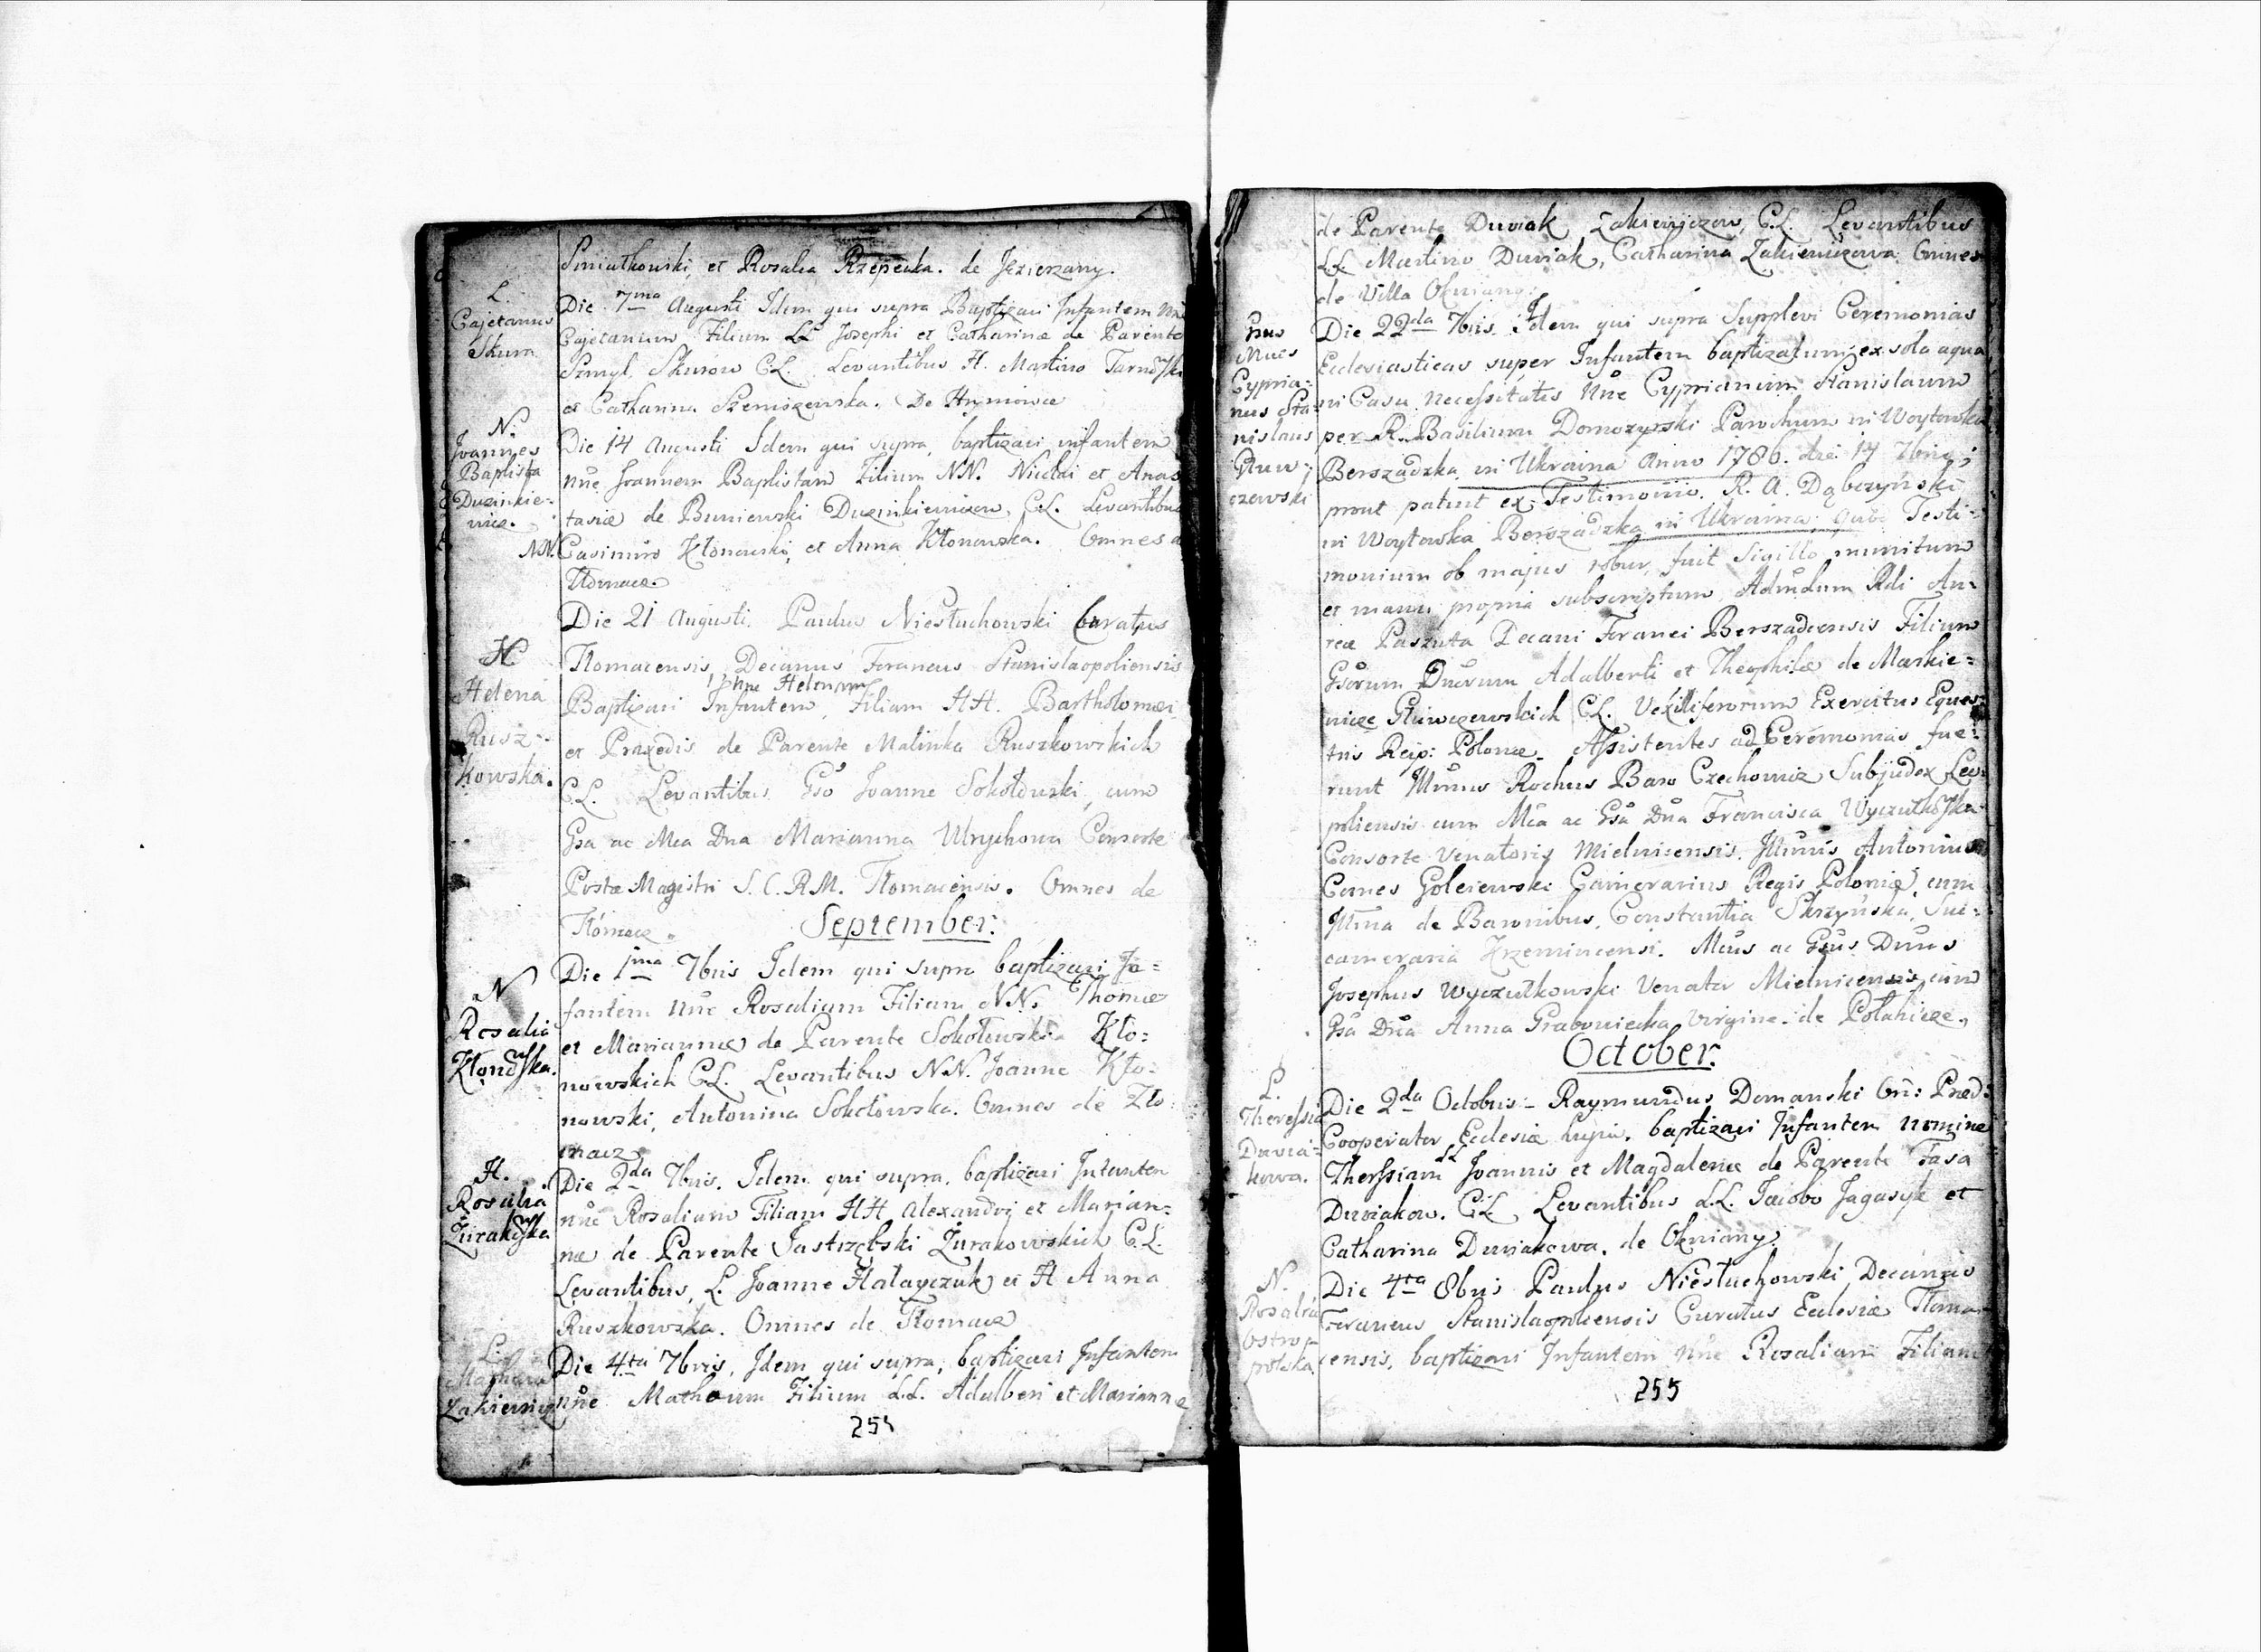 Smiatkowski, et Rosalia Rzepecka. de Jezierzany.
L.
Cajetanus
Skura
Die 7ma Augusti Idem qui supra Baptizavi Infantem
Cajetanum Filium LL Josephi et Catharinæ de Parente
Szmyl, Skurow C.L. Levantibus H. Martino
et Catharina Szeniszewska. De Hryniowce
N.
Joannes
Baptista
Duzinkie-
wicz.
NN.
Die 14 Augusti Idem qui supra, baptizavi infantem
nñe Joannem Baptistam Filium NN. Nicolai et Anas
tasiæ de Buniewski Duzinkiewiczow, C.L. Levantibus
Casimiro Kłonowski, et Anna Kłonowska. Omnes
Tłomacz.
H
Helena
Rusz-
kowska.
Die 21 Augusti. Paulus Niestuchowski Curatus
Tłomacensis, Decanus Foraneus Stanislaopoliensis
nñe Helenam
Baptizavi Infantem, Filiam HH. Bartholomæi
et Praxedis de Parente Malinka Ruszkowskich
C.L. Levantibus Gso Joanne Sokołowski, cum
Gsa ac Mca Dna Marianna Ulrychowa Consorte
Postæ Magistri S.C.R.M. Tłomacensis. Omnes de
Tłomacz. September.
N
Rosalia
Kłonowska.
Die 1ma 7bris Idem qui supra baptizavi In=
fantem nñe Rosaliam Filiam NN. Thomæ
et Mariannæ de Parente Sokołowski Kło=
nowskich C.L. Levantibus N.N. Joanne Kło-
nowski, Antonina Sokołowska. Omnes de Tło-
macz.
H.
Rosalia
Żurakowska
Die 2da 7bris. Idem qui supra, baptizavi Infantem
nñe Rosaliam Filiam HH Alexandri et Marian=
næ de Parente Jastrzębski Żurakowskich C.L.
Levantibus, L. Joanne Hałayczuk et H Anna
Ruszkowska. Omnes de Tłomacz
L.
Zakiewicz
Die 4ta 7bris, Idem qui supra, baptizavi Infantem
nñe Matheum Filium L.L. Adalberi et Marianne
de Parente Duviak Zakiewiczow, C.L. Levantibus
L.L. Martino Duviak, Catharina Zakiewiczowa Omnes
de Villa Okniany.
Gsus
Mcus
Cypria-
nus Sta-
nislaus
Gluw-
czewski
Die 22da 7bris. Idem qui supra Supplevi Ceremonias
Ecclesiasticas super Infantem baptizatum ex sola aqua
in Casu necessitatis nñe Cyprianum Stanislaum
per R. Basilium Domozyrski Parochum in Woytowka
Berszadzka in Ukraina anno 1786. die 14 7bris;
prout patuit ex Testimonio. R. A. Dąbczyński
in Woytowka Berszadzka in Ukraina, quod Testi-
monium ob majus robur, fuit Sigillo munitum
et manu propria subscriptum Admdum Rdi An-
reæ Paszuta Decani Foranei Berszadiensis Filium
Gsorum Dnorum Adalberti et Theophilæ de Markie=
wicze Gluwczewskich C.L. Vexilliferorum Exercitus Eques-
tris Reip: Polonæ. Assistentes ad Ceremonias fue-
runt Rochus Baro Czechowicz Subjudex Leo-
poliensis cum Mca ac Gsa Dna Francisca Wyczułkowska
Consorte Venatoris Mielnicensis. Antonius
Comes Golejewski Camerarius Regis Poloniæ, cum
de Baronibus Constantia Skrzyńska, Suc-
cameraria Krzemincensi. Mcus ac Gsus Dnus
Josephus Wyczułkowski Venator Mielnicensis, cum
Gsa Dna Anna Grabowiecka Virgine de Połahicze.
October.
L.
Theressia
Duvia-
kowa.
Die 2da Octobris - Raymundus Domanski Ord: Præd:
Cooperator Ecclesiæ hujus, baptizavi Infantem nomine
LL
Therssiam Joannis et Magdalenæ de Parente Fasa
Duviakow. C.L. Levantibus L.L. Jacobo Jagasyk et
Catharina Duviakowa, de Okniany.
N.
Rosalia
Ostro-
polska
Die 4ta 8bris Paulus Niestuchowski, Decanus
Foraneus Stanislaopoliensis Curatus Ecclesiæ Tłoma-
censis, baptizavi Infantem nñe Rosaliam Filiam
255